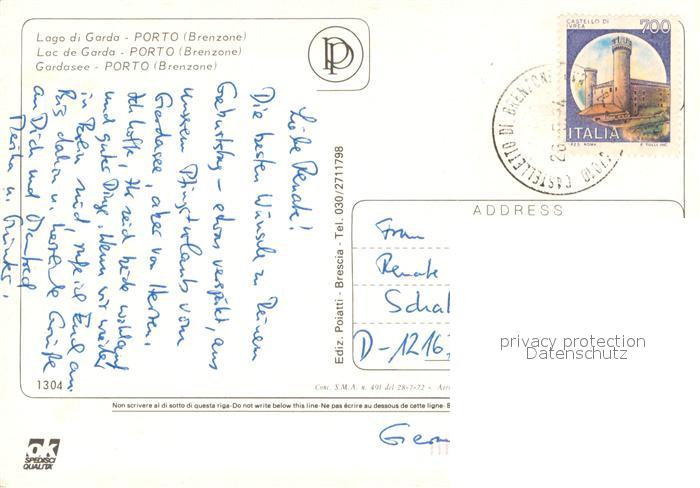 Lago di Garda - PORTO (Brenzone)
Lac de Garda - PORTO (Brenzone)
Gardasee - PORTO (Brenzone)
Liebe Renate!
Die besten Wünsche zu Deinem
Geburtstag – etwas verspätet, aus
unserem Pfingsturlaub vom
Gardasee, aber von Herzen.
Ich hoffe, Ihr seid beide wohlauf
und guter Dinge. Wenn wir wieder
in Berlin sind, rufe ich Euch an.
Bis dahin u. herzliche Grüße
an Dich und Manfred
u. Günter.
1304
ok
SPEDISCI
QUALITÀ
Ediz. Poiatti - Brescia - Tel. 030/2711798
P
CASTELLO DI
IVREA
700
ITALIA
I.P.Z.S. ROMA
CASTELLETTO DI BRENZONE
ADDRESS
Frau
Renate
Schal
D-1216
Germ
privacy protection
Datenschutz
Conc. S.M.A. n. 491 del 28-7-72 -
Non scrivere al di sotto di questa riga - Do not write below this line - Ne pas écrire au dessous de cette ligne -